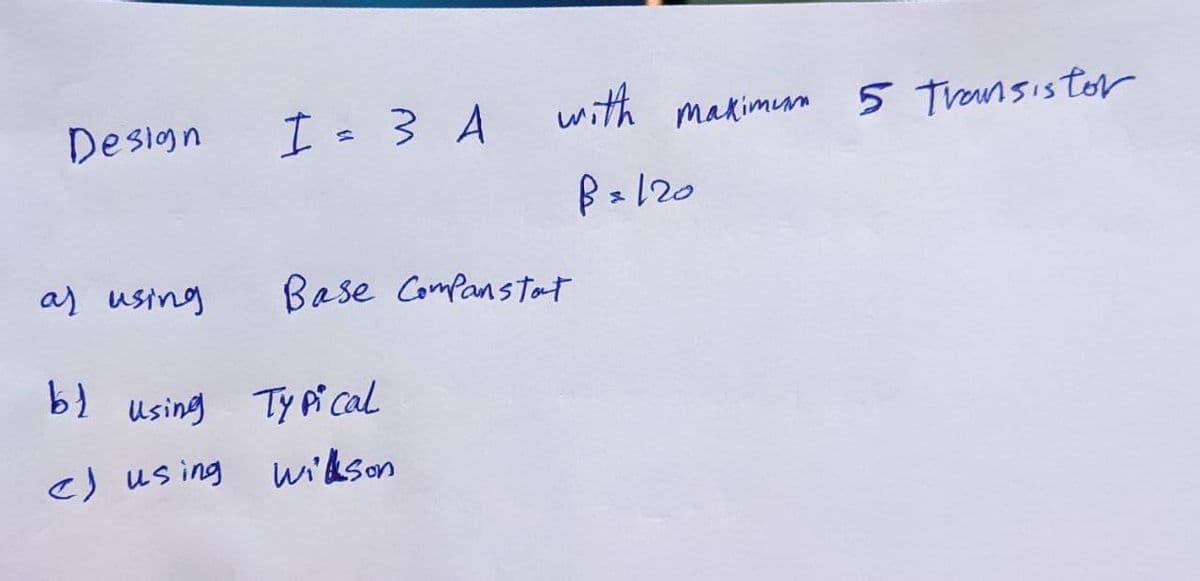 Design I = 3 A with maximum 5 Transistor
β = 120
a) using Base Companstat
b) using Typical
c) using wilson